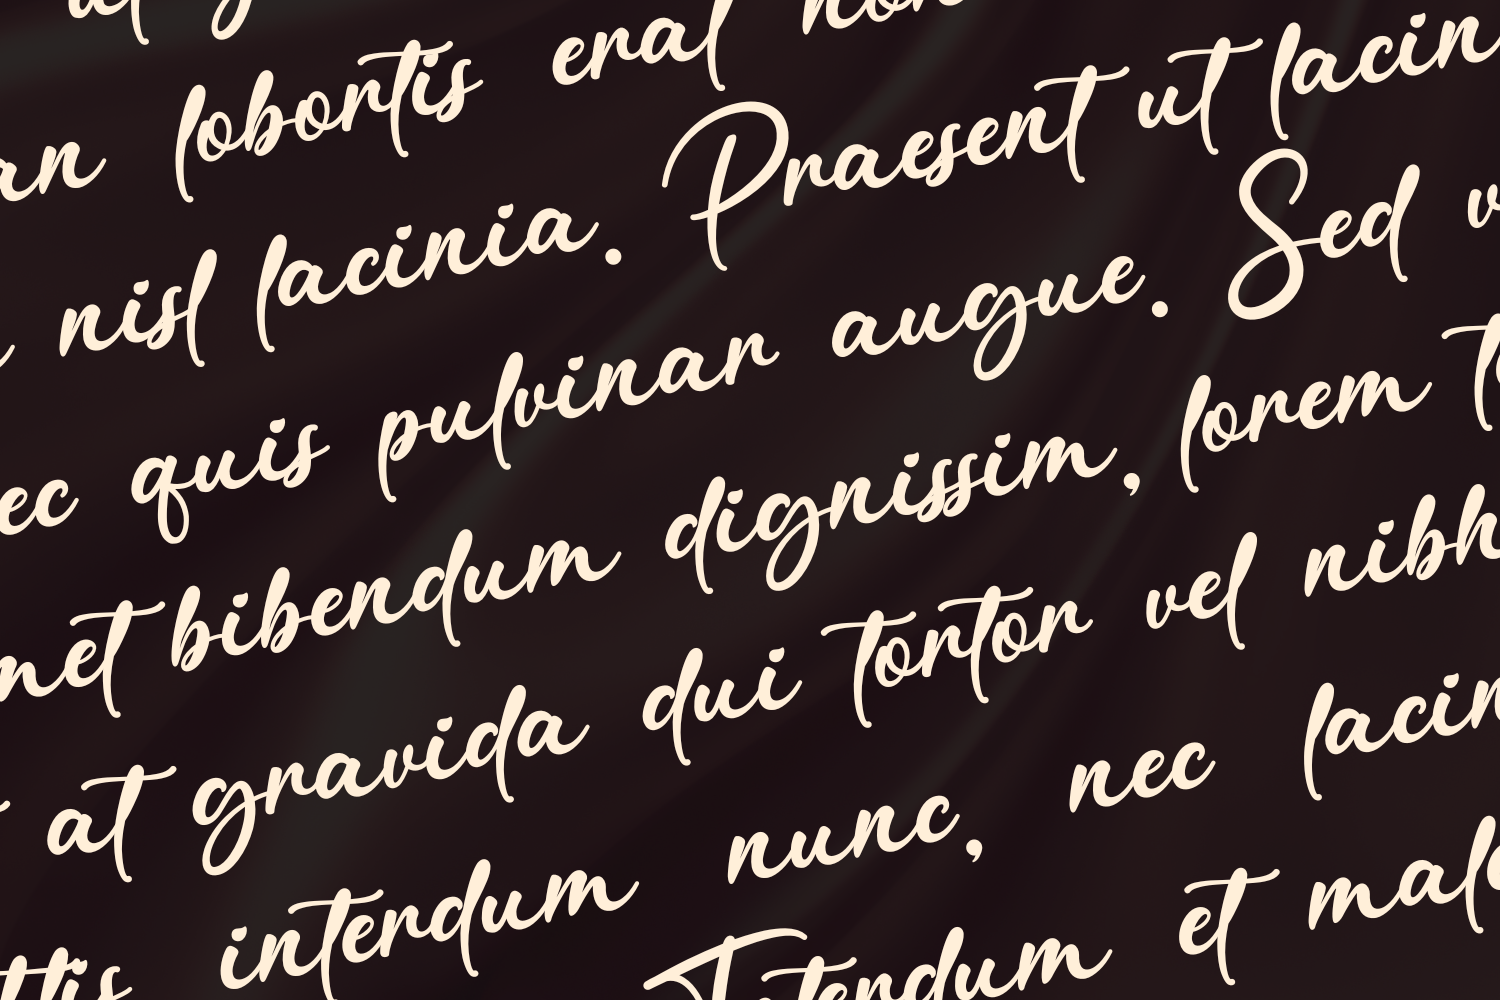 lobortis erat non
nisl lacinia. Praesent ut lacin
ec quis pulvinar augue. Sed v
met bibendum dignissim, lorem t
at gravida dui tortor vel nibh
interdum nunc, nec lacin
ttis Interdum et male